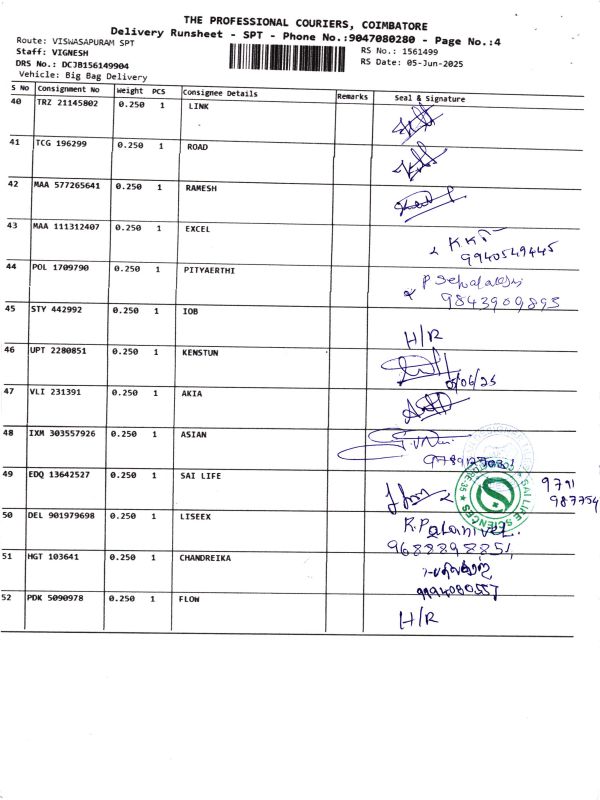 THE PROFESSIONAL COURIERS, COIMBATORE
Delivery Runsheet - SPT - Phone No.:9047080280 - Page No.:4
Route: VISWASAPURAM SPT
RS No.: 1561499
Staff: VIGNESH
RS Date: 05-Jun-2025
DRS No.: DCJB156149904
Vehicle: Big Bag Delivery
S No Consignment No Weight PCS Consignee Details Remarks Seal & Signature
40 TRZ 21145802 0.250 1 LINK
41 TCG 196299 0.250 1 ROAD
42 MAA 577265641 0.250 1 RAMESH
43 MAA 111312407 0.250 1 EXCEL
9940549445
44 POL 1709790 0.250 1 PITYAERTHI
9843909893
45 STY 442992 0.250 1 IOB
H/R
46 UPT 2280851 0.250 1 KENSTUN
05/06/25
47 VLI 231391 0.250 1 AKIA
48 IXM 303557926 0.250 1 ASIAN
49 EDQ 13642527 0.250 1 SAI LIFE
SAI LIFE SCIENCES
9791
987754
50 DEL 901979698 0.250 1 LISEEX
R. Palanivel
9688898851
51 HGT 103641 0.250 1 CHANDREIKA
9994080557
52 PDK 5090978 0.250 1 FLOW
H/R